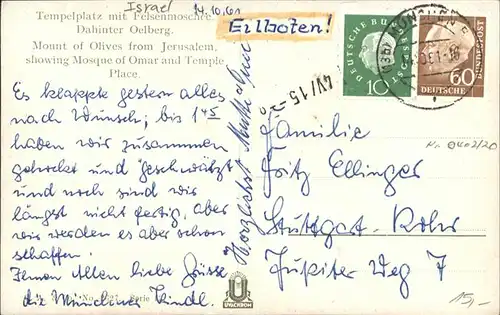 Israel
14.10.61
Eilboten!
Tempelplatz mit Felsenmoschee.
Dahinter Oelberg.
Mount of Olives from Jerusalem,
showing Mosque of Omar and Temple
Place.
Es klappte gestern alles
nach Wunsch; bis 1 45
haben wir zusammen
gehockt und geschwätzt
und noch sind wir
längst nicht fertig, aber
wir werden es aber schon
schaffen.
Ihnen Allen liebe Grüsse
die Münchner Kindl.
Herzlichst Mutti
DEUTSCHE BUNDESPOST
10
MÜNCHEN
DEUTSCHE BUNDESPOST
60
4V/15
Familie
Fritz Ellinger
Stuttgart-Rohr
Jupiter Weg 7
Nr 0402/20
UVACHROM
Serie
15,-